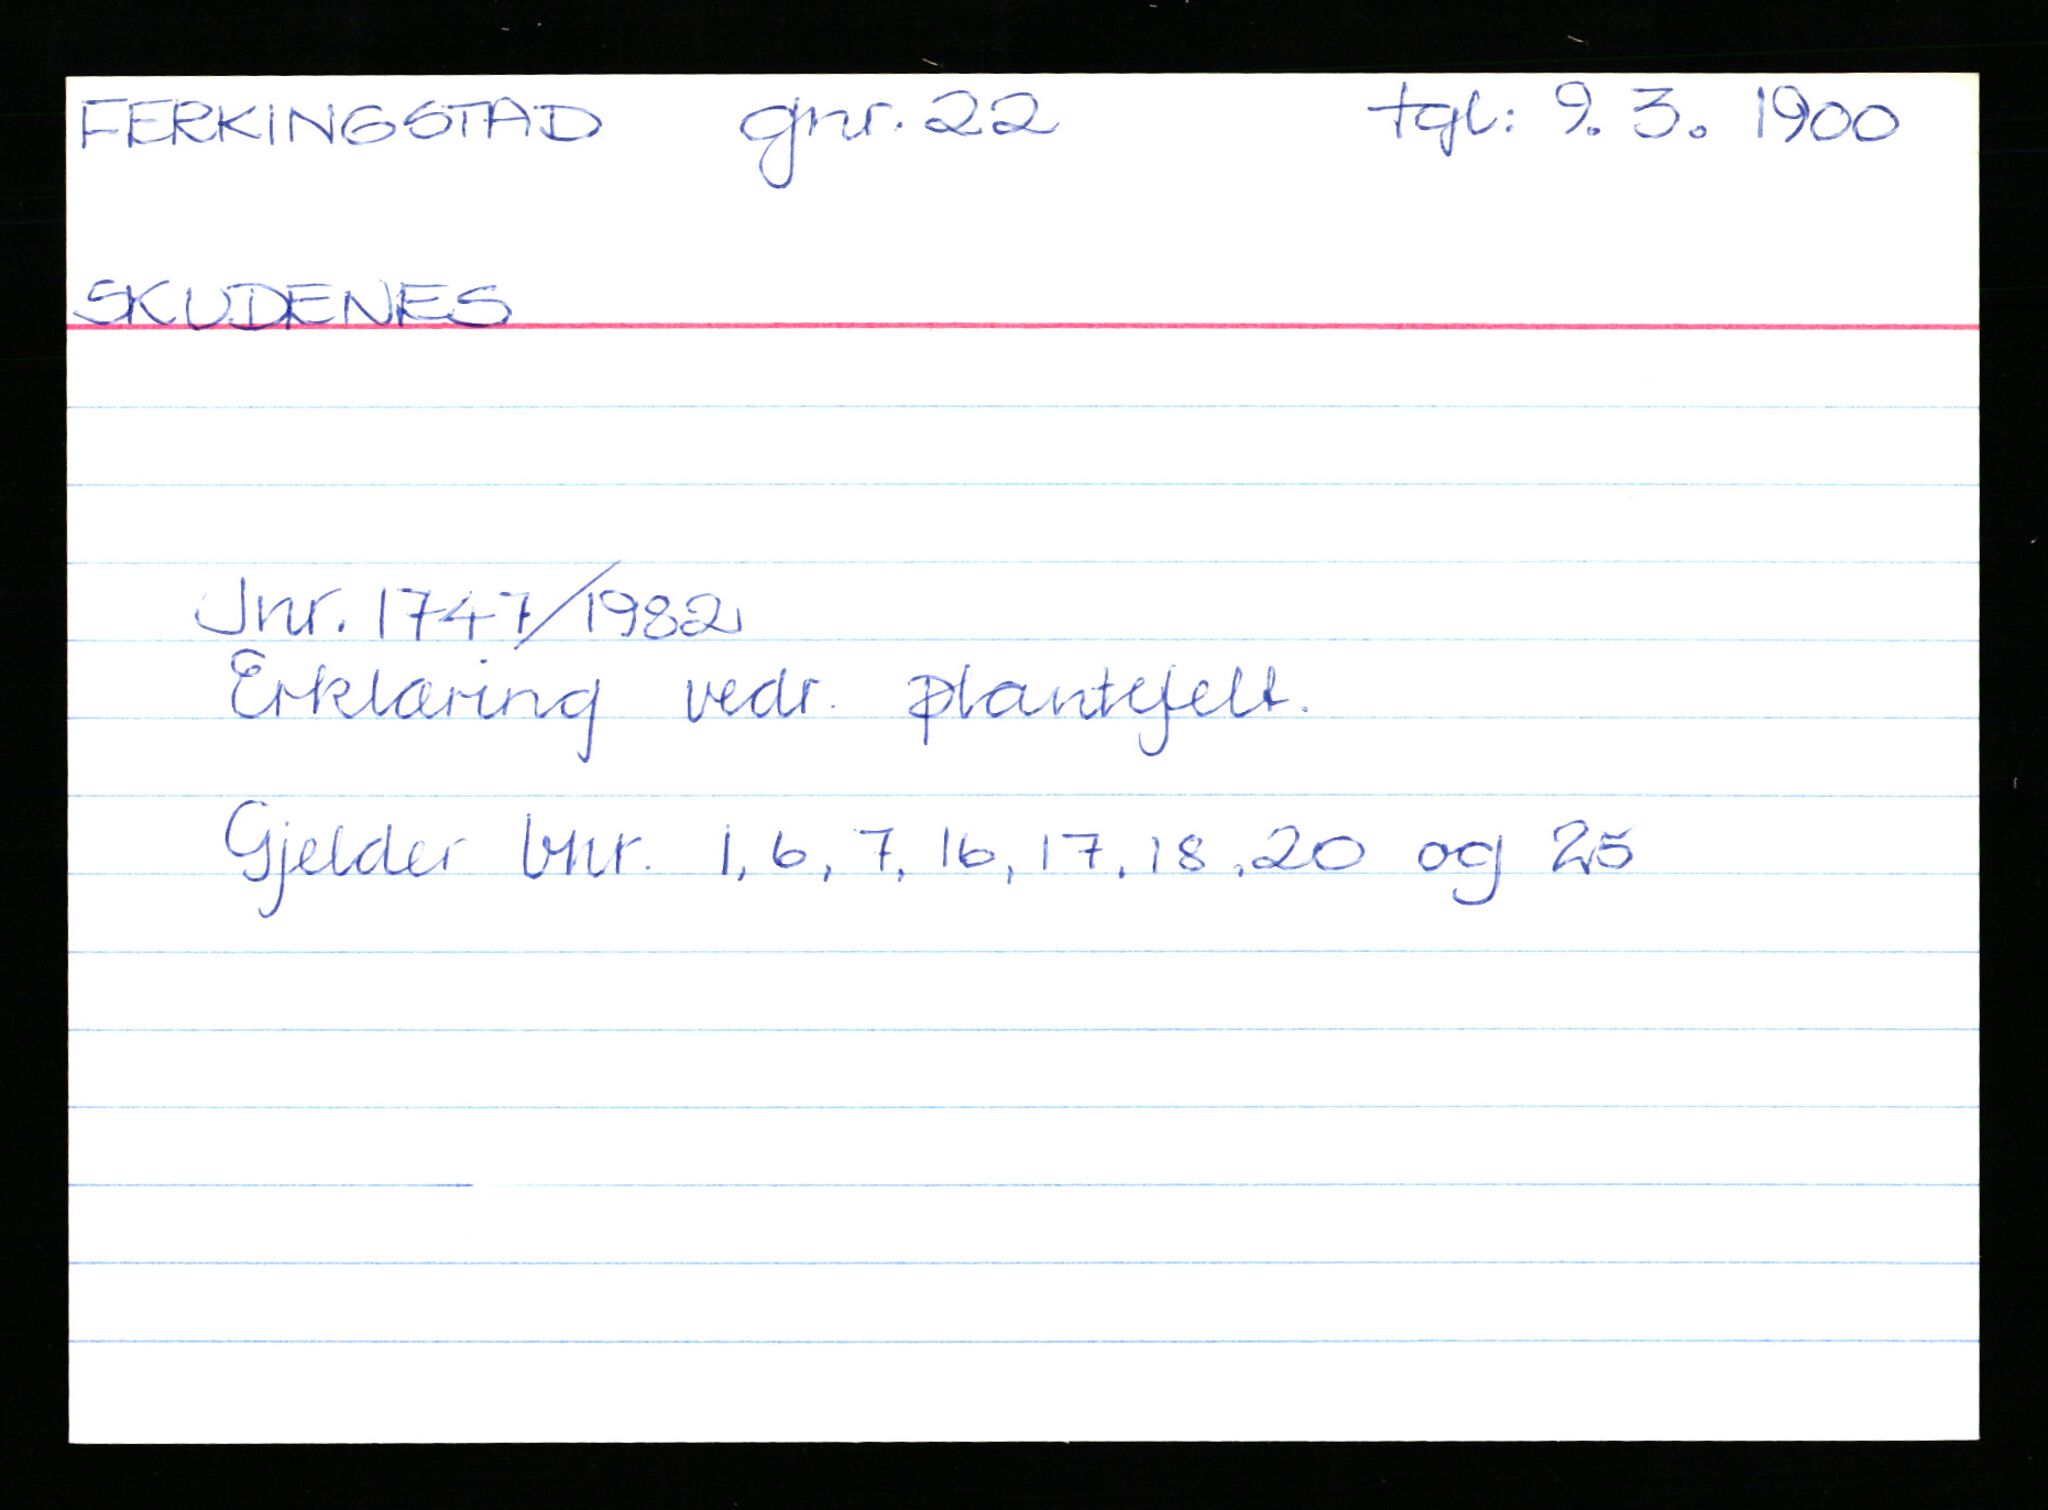 FERKINGSTAD gnr. 22 tgl: 9. 3. 1900
SKUDENES
Jnr. 1747/1982
Erklæring vedr. plantefelt.
Gjelder bnr. 1, 6, 7, 16, 17, 18, 20 og 25